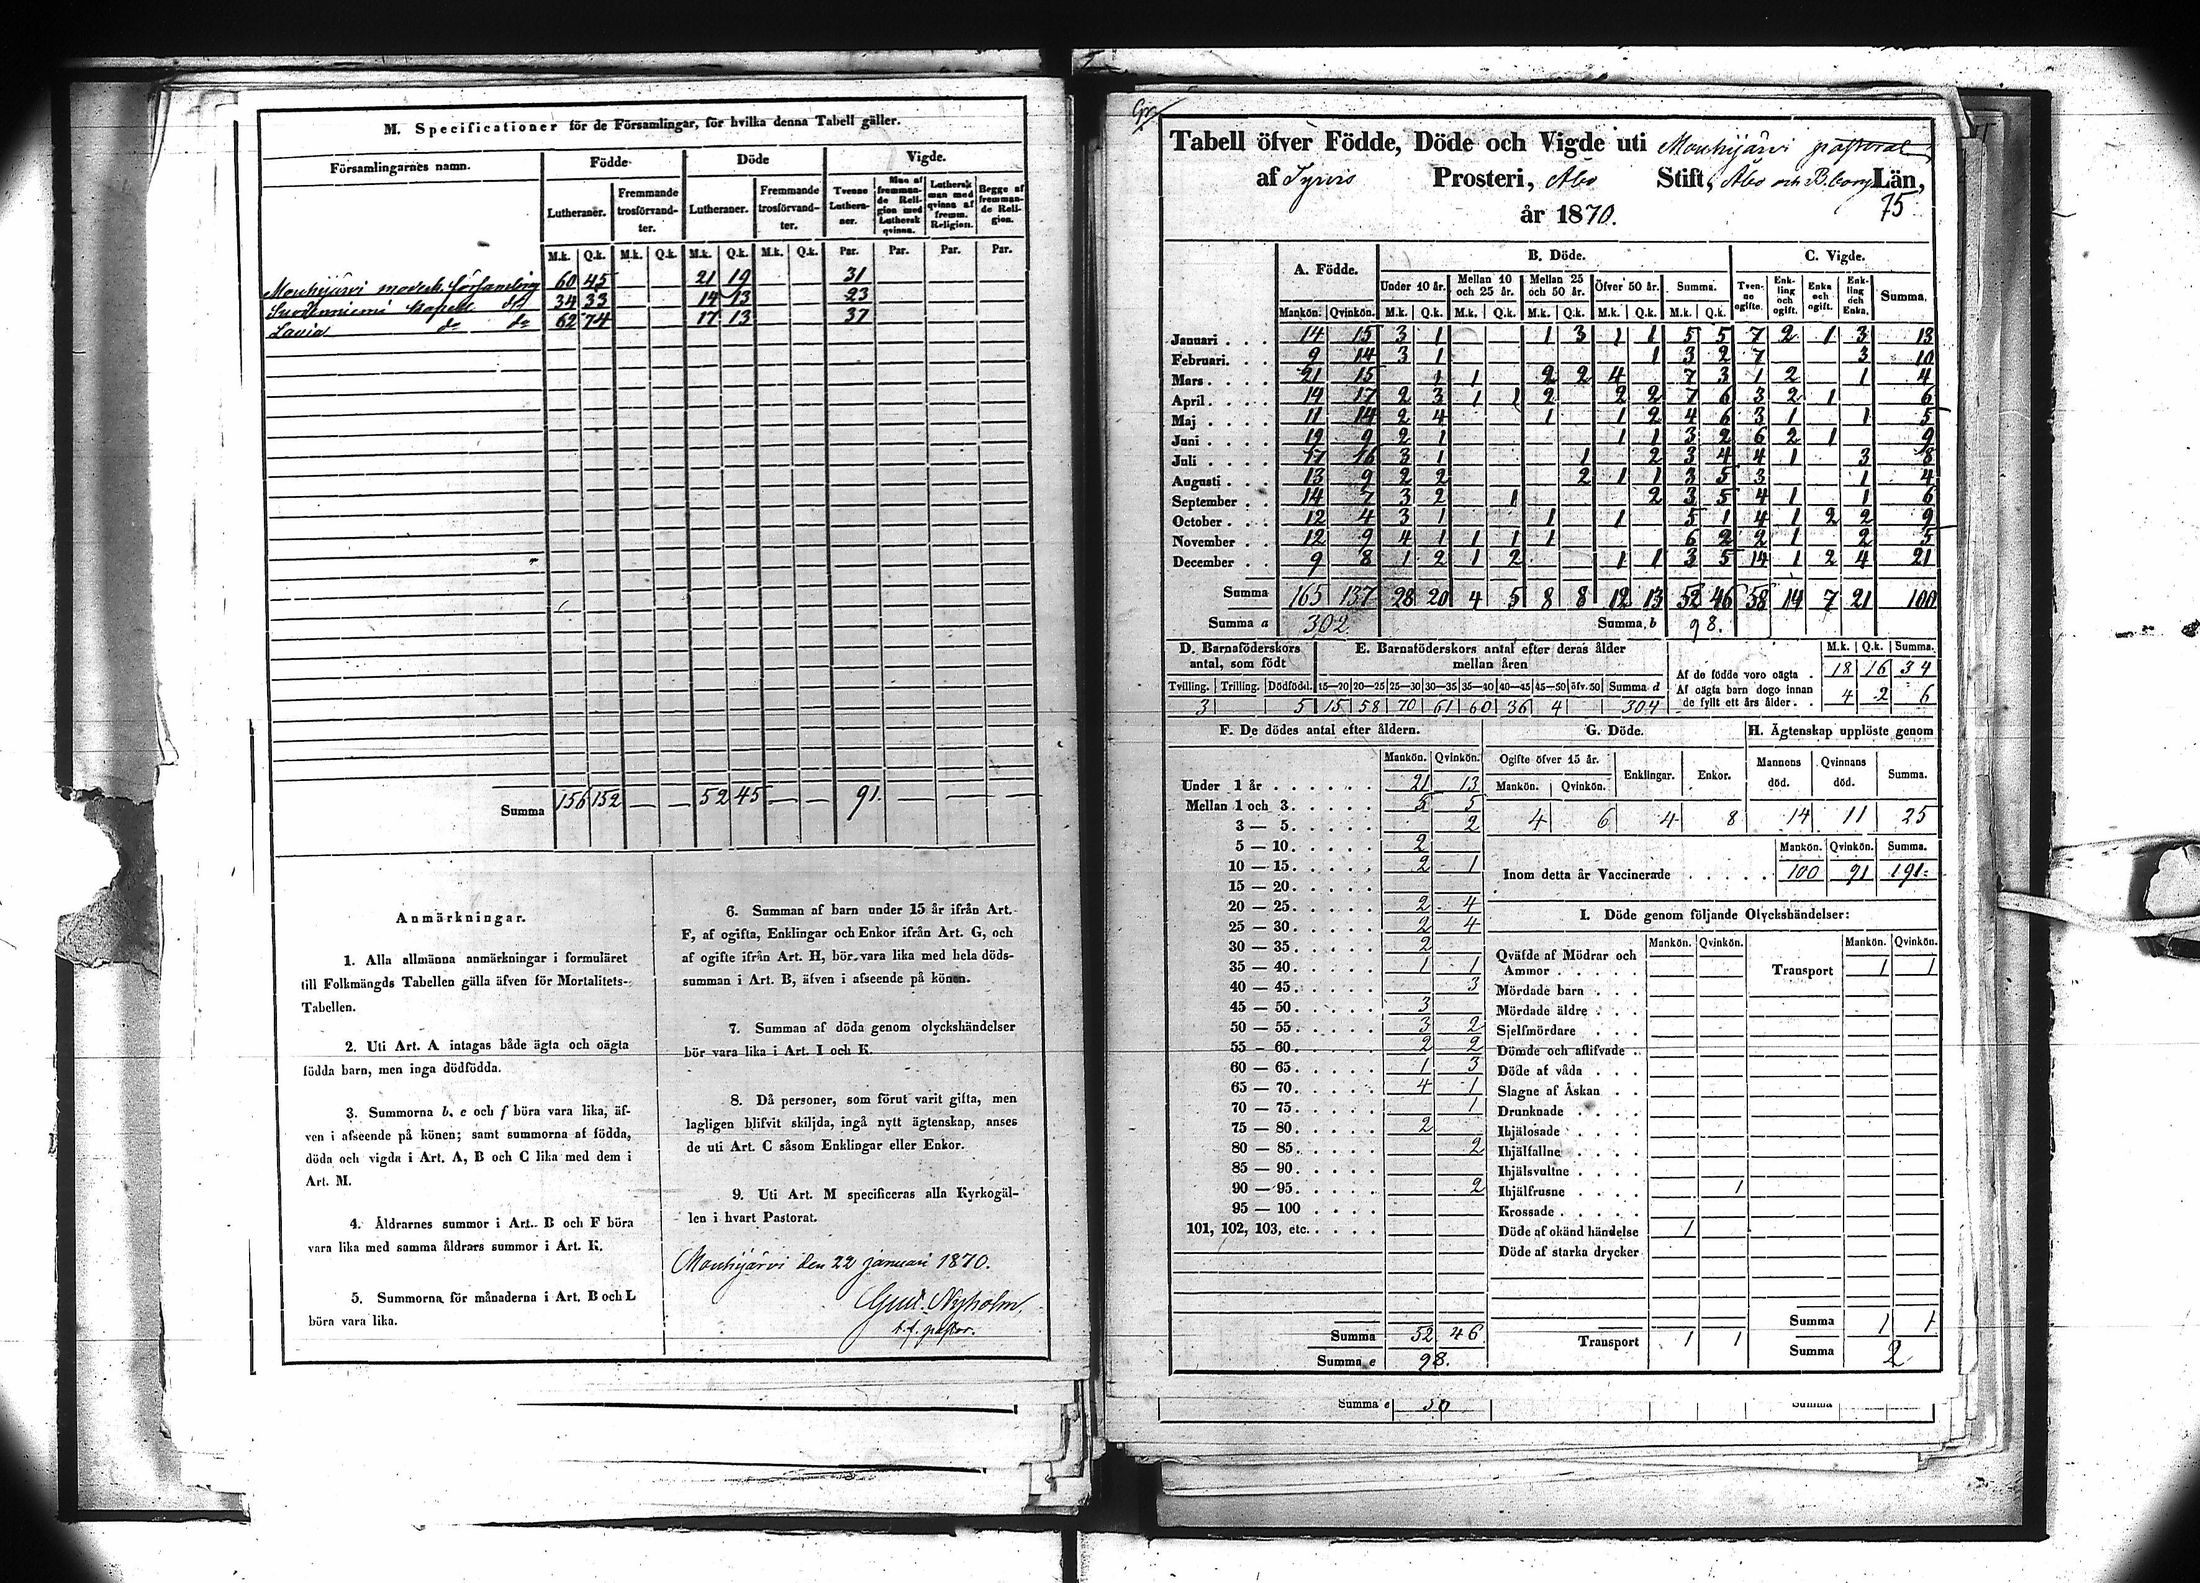 M. Specificationer för de Församlingar, för hvilka denna Tabell gäller.
Församlingarnes namn. Födde Döde Vigde.
Lutheraner. Fremmande trosförvandter. Lutheraner. Fremmande trosförvandter. Tvenne Lutheraner. Man af fremmande Religion med Luthersk qvinna. Luthersk man med qvinna af fremm. Religion. Begge af fremmande Religion.
M.k. Q.k. M.k. Q.k. M.k. Q.k. M.k. Q.k. Par. Par. Par. Par.
Mouhijärvi moderförsamling 60 45 21 19 31
Suodenniemi kapell do 34 33 14 13 23
Lavia do do 62 74 17 13 37
Summa 156 152 — — 52 45 — — 91. — — —
Anmärkningar.
1. Alla allmänna anmärkningar i formuläret
till Folkmängds Tabellen gälla äfven för Mortalitets-
Tabellen.
2. Uti Art. A intagas både ägta och oägta
födda barn, men inga dödfödda.
3. Summorna b, e och f böra vara lika, äf-
ven i afseende på könen; samt summorna af födda,
döda och vigda i Art. A, B och C lika med dem i
Art. M.
4. Åldrarnes summor i Art. B och F böra
vara lika med samma åldrars summor i Art. K.
5. Summorna för månaderna i Art. B och L
böra vara lika.
6. Summan af barn under 15 år ifrån Art.
F, af ogifta, Enklingar och Enkor ifrån Art. G, och
af ogifte ifrån Art. H, bör vara lika med hela döds-
summan i Art. B, äfven i afseende på könen.
7. Summan af döda genom olyckshändelser
bör vara lika i Art. I och K.
8. Då personer, som förut varit gifta, men
lagligen blifvit skiljda, ingå nytt ägtenskap, anses
de uti Art. C såsom Enklingar eller Enkor.
9. Uti Art. M specificeras alla Kyrkogäl-
len i hvart Pastorat.
Mouhijärvi den 22 januari 1870.
Gust. Nyholm.
t.f. pastor.
Tabell öfver Födde, Döde och Vigde uti Mouhijärvi pastorat
af Tyrvis Prosteri, Åbo Stift, Åbo och B.borg Län,
år 1870. 75
A. Födde. B. Döde. C. Vigde.
Under 10 år. Mellan 10 och 25 år. Mellan 25 och 50 år. Öfver 50 år. Summa. Tvenne ogifte. Enkling och ogift. Enka och ogift. Enkling och Enka. Summa.
Mankön. Qvinkön. M.k. Q.k. M.k. Q.k. M.k. Q.k. M.k. Q.k. M.k. Q.k.
Januari . . . 14 15 3 1 1 3 1 1 5 5 7 2 1 3 13
Februari. . . 9 14 3 1 1 3 2 7 3 10
Mars . . . . 21 15 1 1 2 2 4 7 3 1 2 1 4
April. . . . 14 17 2 3 1 1 2 2 2 7 6 3 2 1 6
Maj . . . . 11 14 2 4 1 1 2 4 6 3 1 1 5
Juni . . . . 19 9 2 1 1 1 3 2 6 2 1 9
Juli . . . . 17 16 3 1 1 2 3 4 4 1 3 8
Augusti . . . 13 9 2 2 2 1 1 3 5 3 1 4
September . . 14 7 3 2 1 2 3 5 4 1 1 6
October . . . 12 4 3 1 1 1 5 1 4 1 2 2 9
November . . 12 9 4 1 1 1 1 6 2 2 1 2 5
December . . 9 8 1 2 1 2 1 1 3 5 14 1 2 4 21
Summa 165 137 28 20 4 5 8 8 12 13 52 46 58 14 7 21 100
Summa a 302. Summa, b 98.
D. Barnaföderskors antal, som födt
Tvilling. Trilling. Dödfödd.
3 5
E. Barnaföderskors antal efter deras ålder mellan åren
15—20 20—25 25—30 30—35 35—40 40—45 45—50 öfv. 50 Summa d
15 58 70 61 60 36 4 304
M.k. Q.k. Summa.
Af de födde voro oägta . 18 16 34
Af oägta barn dogo innan
de fyllt ett års ålder . . 4 2 6
F. De dödes antal efter åldern.
Mankön. Qvinkön.
Under 1 år . . . . . . 21 13
Mellan 1 och 3. . . . . 5 5
3 — 5. . . . . 2
5 — 10. . . . . 2
10 — 15. . . . . 2 1
15 — 20. . . . .
20 — 25. . . . . 2 4
25 — 30. . . . . 2 4
30 — 35. . . . . 2
35 — 40. . . . . 1 1
40 — 45. . . . . 3
45 — 50. . . . . 3
50 — 55. . . . . 3 2
55 — 60. . . . . 2 2
60 — 65. . . . . 1 3
65 — 70. . . . . 4 1
70 — 75. . . . . 1
75 — 80. . . . . 2
80 — 85. . . . . 2
85 — 90. . . . .
90 — 95. . . . . 2
95 — 100 . . . .
101, 102, 103, etc. . . . .
Summa 52 46
Summa e 98.
G. Döde.
Ogifte öfver 15 år. Enklingar. Enkor.
Mankön. Qvinkön.
4 6 4 8
H. Ägtenskap upplöste genom
Mannens död. Qvinnans död. Summa.
14 11 25
Mankön. Qvinkön. Summa.
Inom detta år Vaccinerade . . . . . 100 91 191
I. Döde genom följande Olyckshändelser:
Mankön. Qvinkön. Mankön. Qvinkön.
Qväfde af Mödrar och
Ammor . . . . .
Transport 1 1
Mördade barn . . .
Mördade äldre . . .
Sjelfmördare . . .
Dömde och aflifvade . .
Döde af våda . . .
Slagne af Åskan . .
Drunknade . . . .
Ihjälosade . . . .
Ihjälfallne . . . .
Ihjälsvultne . . . .
Ihjälfrusne . . . . 1
Krossade . . . . .
Döde af okänd händelse 1
Döde af starka drycker
Summa 1 1
Transport 1 1
Summa 2
Summa e 50
Summa